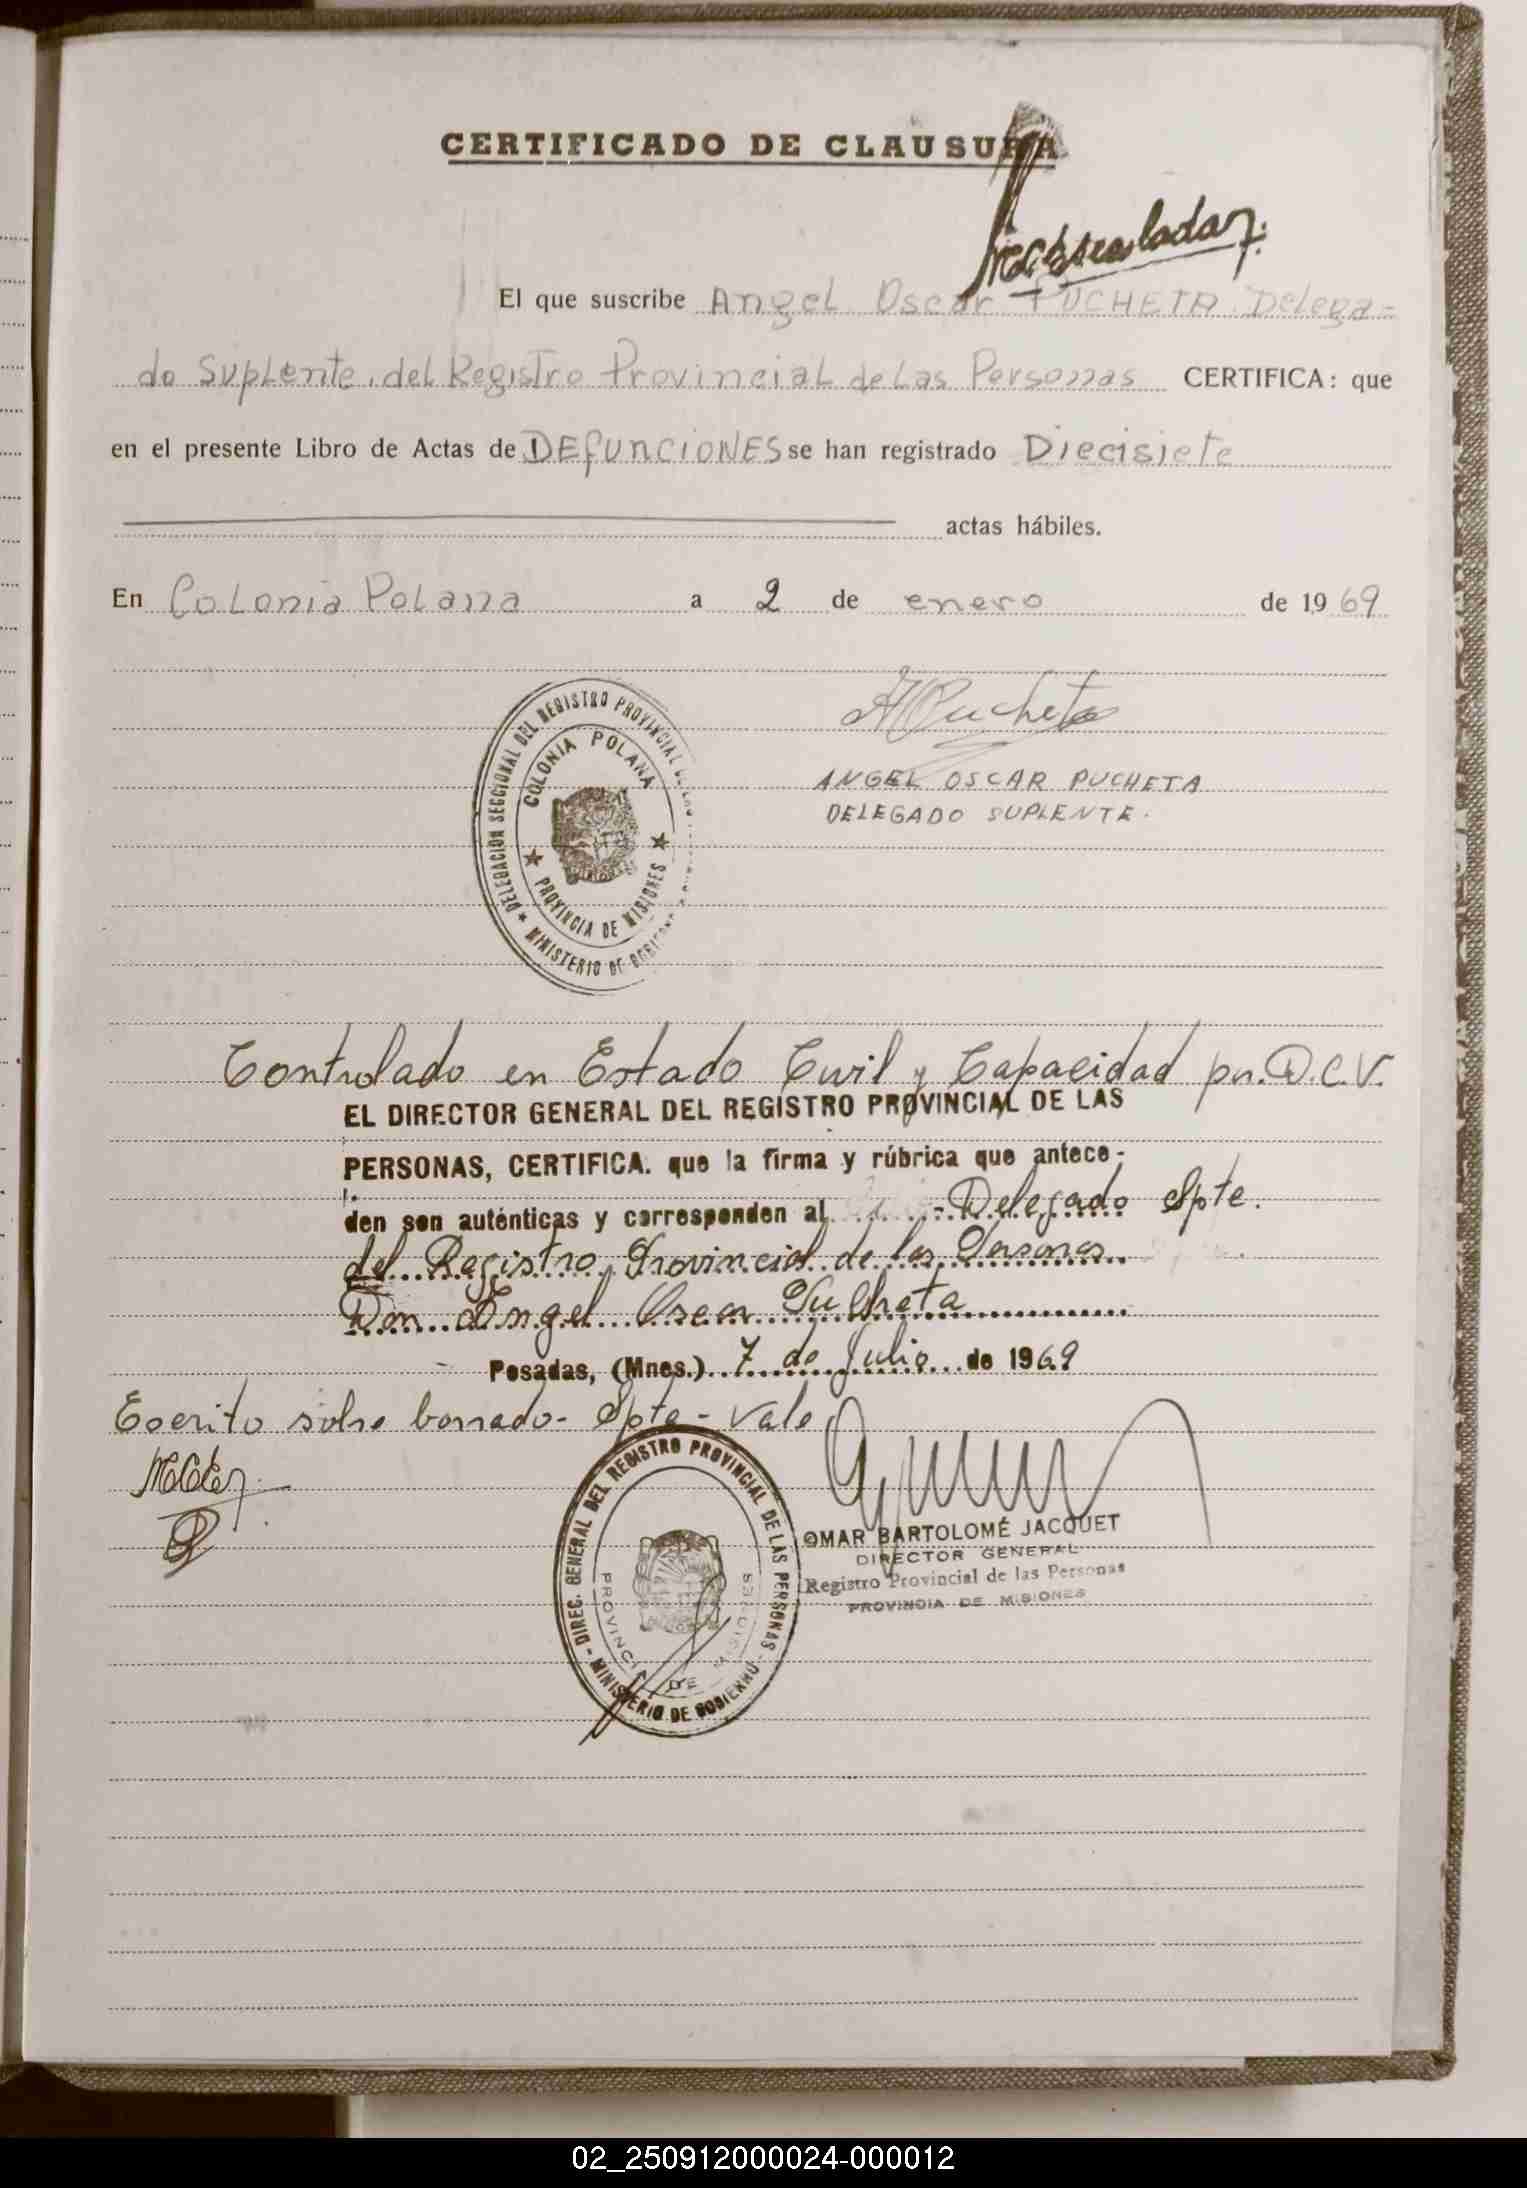 CERTIFICADO DE CLAUSURA
El que suscribe Angel Oscar PUCHETA Delega-
do Suplente del Registro Provincial de Las Personas CERTIFICA: que
en el presente Libro de Actas de DEfunciones se han registrado Diecisiete
actas hábiles.
En Colonia Polana a 2 de enero de 1969
DELEGACION SECCIONAL DEL REGISTRO PROVINCIAL
COLONIA POLANA
PROVINCIA DE MISIONES
MINISTERIO DE GOBIERNO
APucheta
ANGEL OSCAR PUCHETA
DELEGADO SUPLENTE.
Controlado en Estado Civil y Capacidad por D.C.V.
EL DIRECTOR GENERAL DEL REGISTRO PROVINCIAL DE LAS
PERSONAS, CERTIFICA. que la firma y rúbrica que antece-
den son auténticas y corresponden al Delegado Spte.
del Registro Provincial de las Personas
Don Angel Oscar Pucheta
Posadas, (Mnes.) 7 de Julio de 1969
Escrito sobre borrado - Spte - Vale
DIREC. GENERAL DEL REGISTRO PROVINCIAL DE LAS PERSONAS
PROVINCIA DE MISIONES
MINISTERIO DE GOBIERNO
OMAR BARTOLOMÉ JACQUET
DIRECTOR GENERAL
Registro Provincial de las Personas
PROVINCIA DE MISIONES
02_250912000024-000012